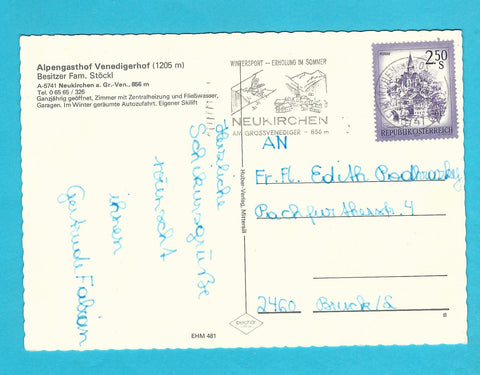 Alpengasthof Venedigerhof (1205 m)
Besitzer Fam. Stöckl
A-5741 Neukirchen a. Gr.-Ven., 856 m
Tel. 0 65 65 / 326
Ganzjährig geöffnet, Zimmer mit Zentralheizung und Fließwasser,
Garagen. Im Winter geräumte Autozufahrt. Eigener Skilift
Herzliche
Schikursgrüße
wünscht
ihnen
Gertrude Fabian
EHM 481
Huber-Verlag, Mittersill
WINTERSPORT – ERHOLUNG IM SOMMER
NEUKIRCHEN
AM GROSSVENEDIGER – 856 m
2.50
S
REPUBLIK ÖSTERREICH
5741
AN
Fr. Fl. Edith
2460 Bruck/L